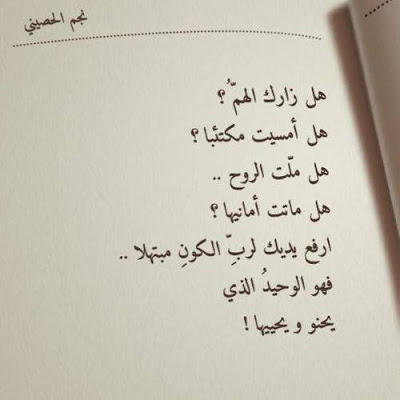 نجم الحصيني
هل زارك الهمُّ ؟
هل أمسيت مكتئبا ؟
هل ملّت الروح ..
هل ماتت أمانيها ؟
ارفع يديك لربِّ الكونِ مبتهلا ..
فهو الوحيدُ الذي
يحنو و يحييها !